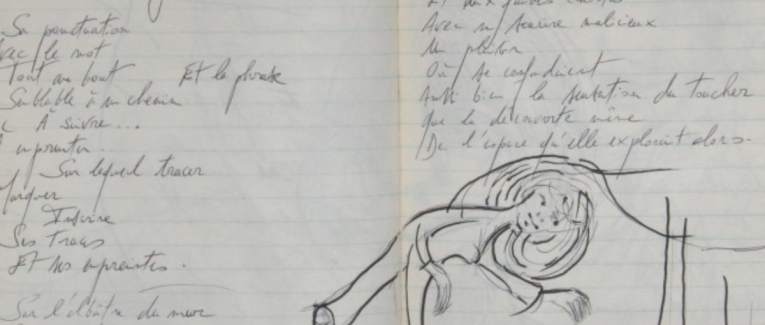 Sa ponctuation
avec le mot
Tout au bout
Et la phrase
Semblable à un chemin
A suivre...
A emprunter.
Sur lequel tracer
Marquer
Inscrire
Ses traces
Et ses empreintes.
Sur l'albâtre du
Avec un sourire malicieux
Un
Où se confondaient
Aussi bien la sensation du toucher
Que la découverte même
De l'espace qu'elle explorait alors.